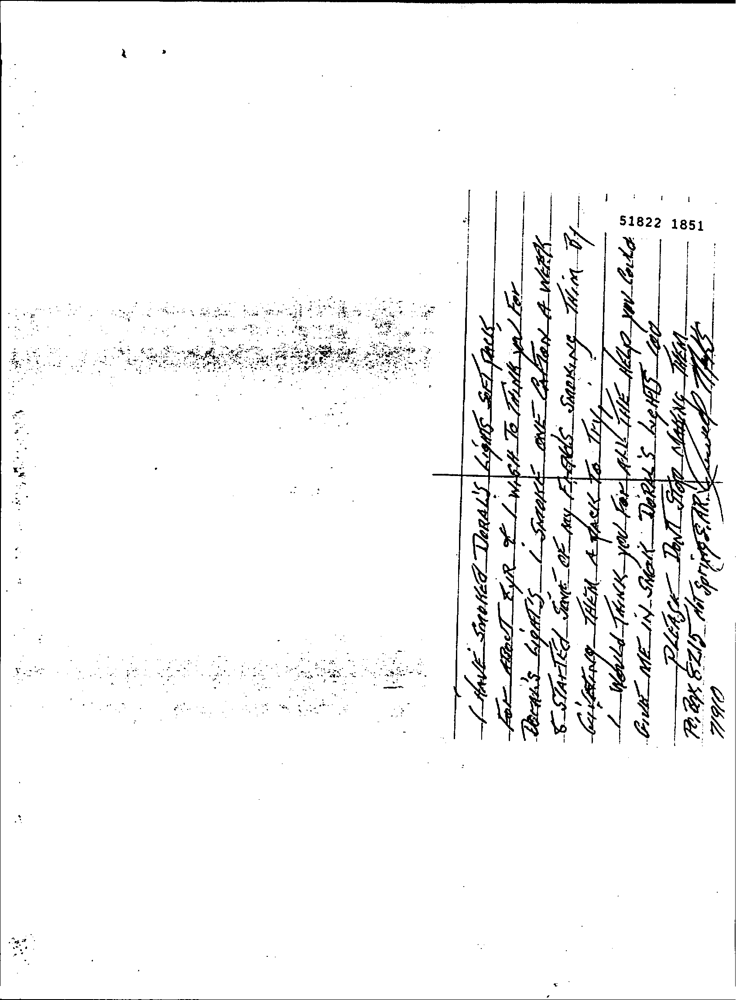 51822 1851
I HAVE SMOKED DORAL'S LIGHTS SOFT PACK
FOR ABOUT YR & I WISH TO THINK YOU FOR
DORAL'S LIGHT'S I SMOKE ONE CARTON A WEEK
& STARTED SOME OF MY FRENDS SMOKING THIM BY
GIVEING THEM A PACK TO TRY
I WOULD THINK YOU FOR ALL THE HELP YOU COULD
GIVE ME IN DORAL'S LIGHTS 100
PLEASE DON'T STOP MAKING THEM
PO, BOX 8215 Hot Springs, AR.
71910